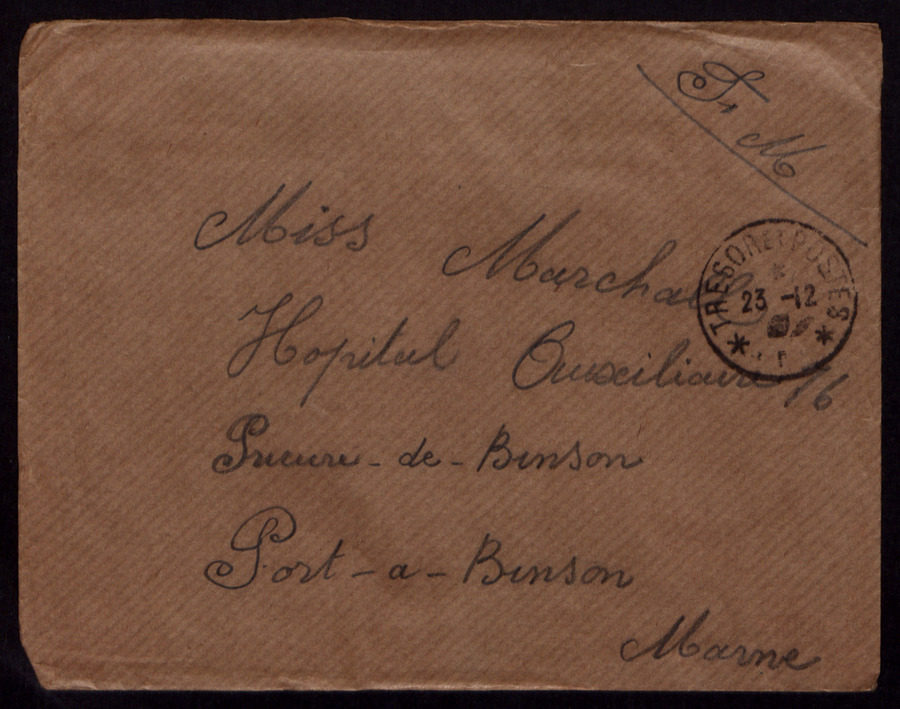 Fr M
Miss Marchal
Hopital Auxiliaire 76
Prieure - de - Binson
Port - a - Binson
Marne
TRESOR ET POSTES
23 -12